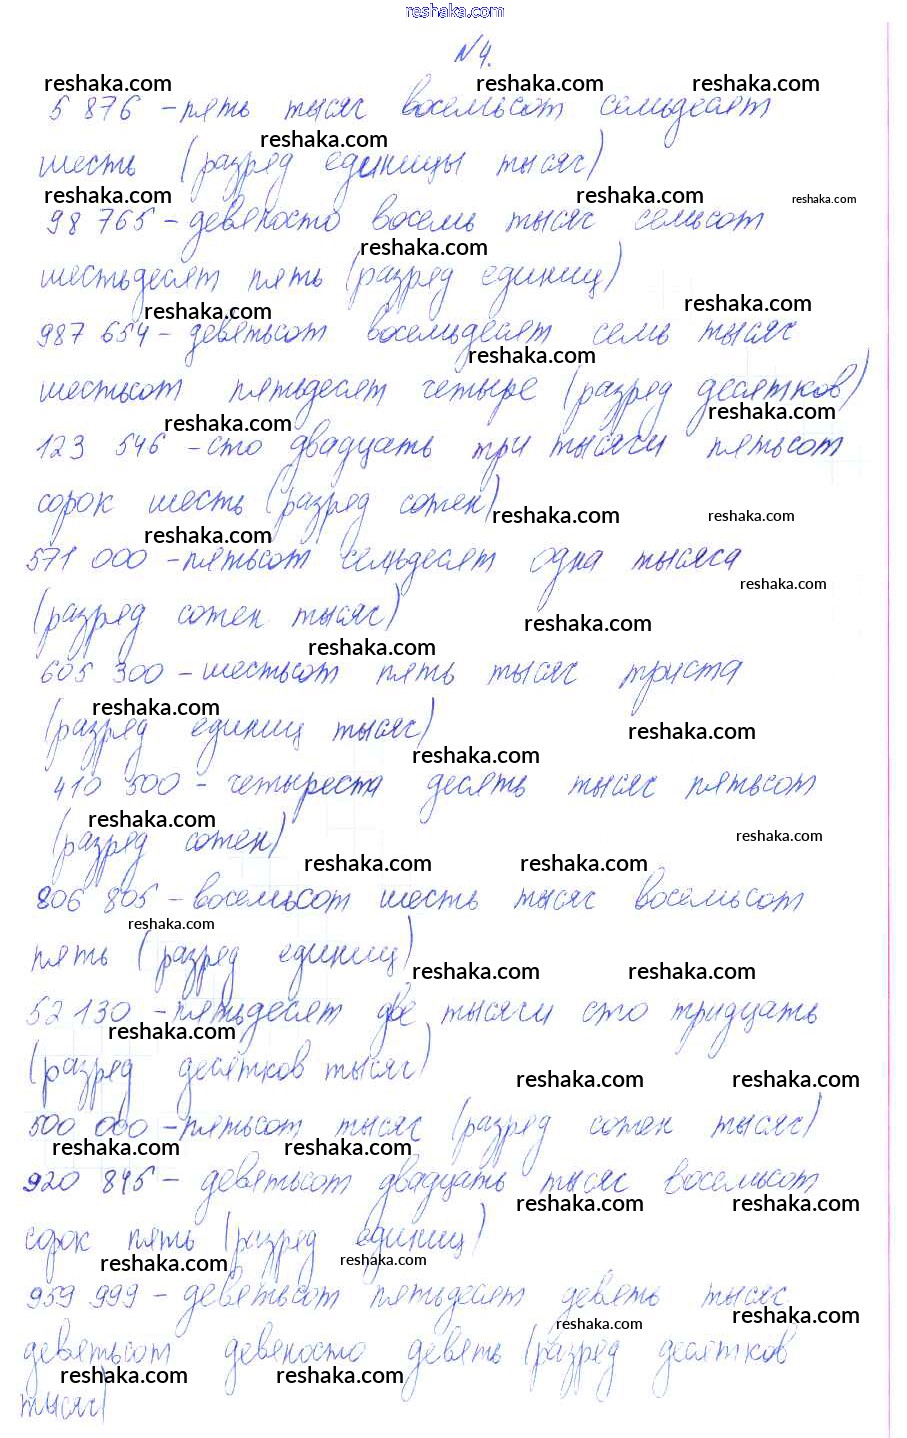 reshaka.com
№4.
reshaka.com reshaka.com reshaka.com
5 876 – пять тысяч восемьсот семьдесят
reshaka.com
шесть (разряд единицы тысяч)
reshaka.com reshaka.com reshaka.com
98 765 – девяносто восемь тысяч семьсот
reshaka.com
шестьдесят пять (разряд единиц)
reshaka.com reshaka.com
987 654 – девятьсот восемьдесят семь тысяч
reshaka.com
шестьсот пятьдесят четыре (разряд десятков)
reshaka.com reshaka.com
123 546 – сто двадцать три тысячи пятьсот
сорок шесть (разряд сотен)
reshaka.com reshaka.com
reshaka.com
571 000 – пятьсот семьдесят одна тысяча
reshaka.com
(разряд сотен тысяч)
reshaka.com
reshaka.com
605 300 – шестьсот пять тысяч триста
reshaka.com
(разряд единиц тысяч)
reshaka.com
reshaka.com
410 500 – четыреста десять тысяч пятьсот
reshaka.com
(разряд сотен)
reshaka.com
reshaka.com reshaka.com
806 805 – восемьсот шесть тысяч восемьсот
reshaka.com
пять (разряд единиц)
reshaka.com reshaka.com
52 130 – пятьдесят две тысячи сто тридцать
reshaka.com
(разряд десятков тысяч)
reshaka.com reshaka.com
500 000 – пятьсот тысяч (разряд сотен тысяч)
reshaka.com reshaka.com
920 845 – девятьсот двадцать тысяч восемьсот
reshaka.com reshaka.com
сорок пять (разряд единиц)
reshaka.com reshaka.com
959 999 – девятьсот пятьдесят девять тысяч
reshaka.com reshaka.com
девятьсот девяносто девять (разряд десятков
reshaka.com reshaka.com
тысяч)